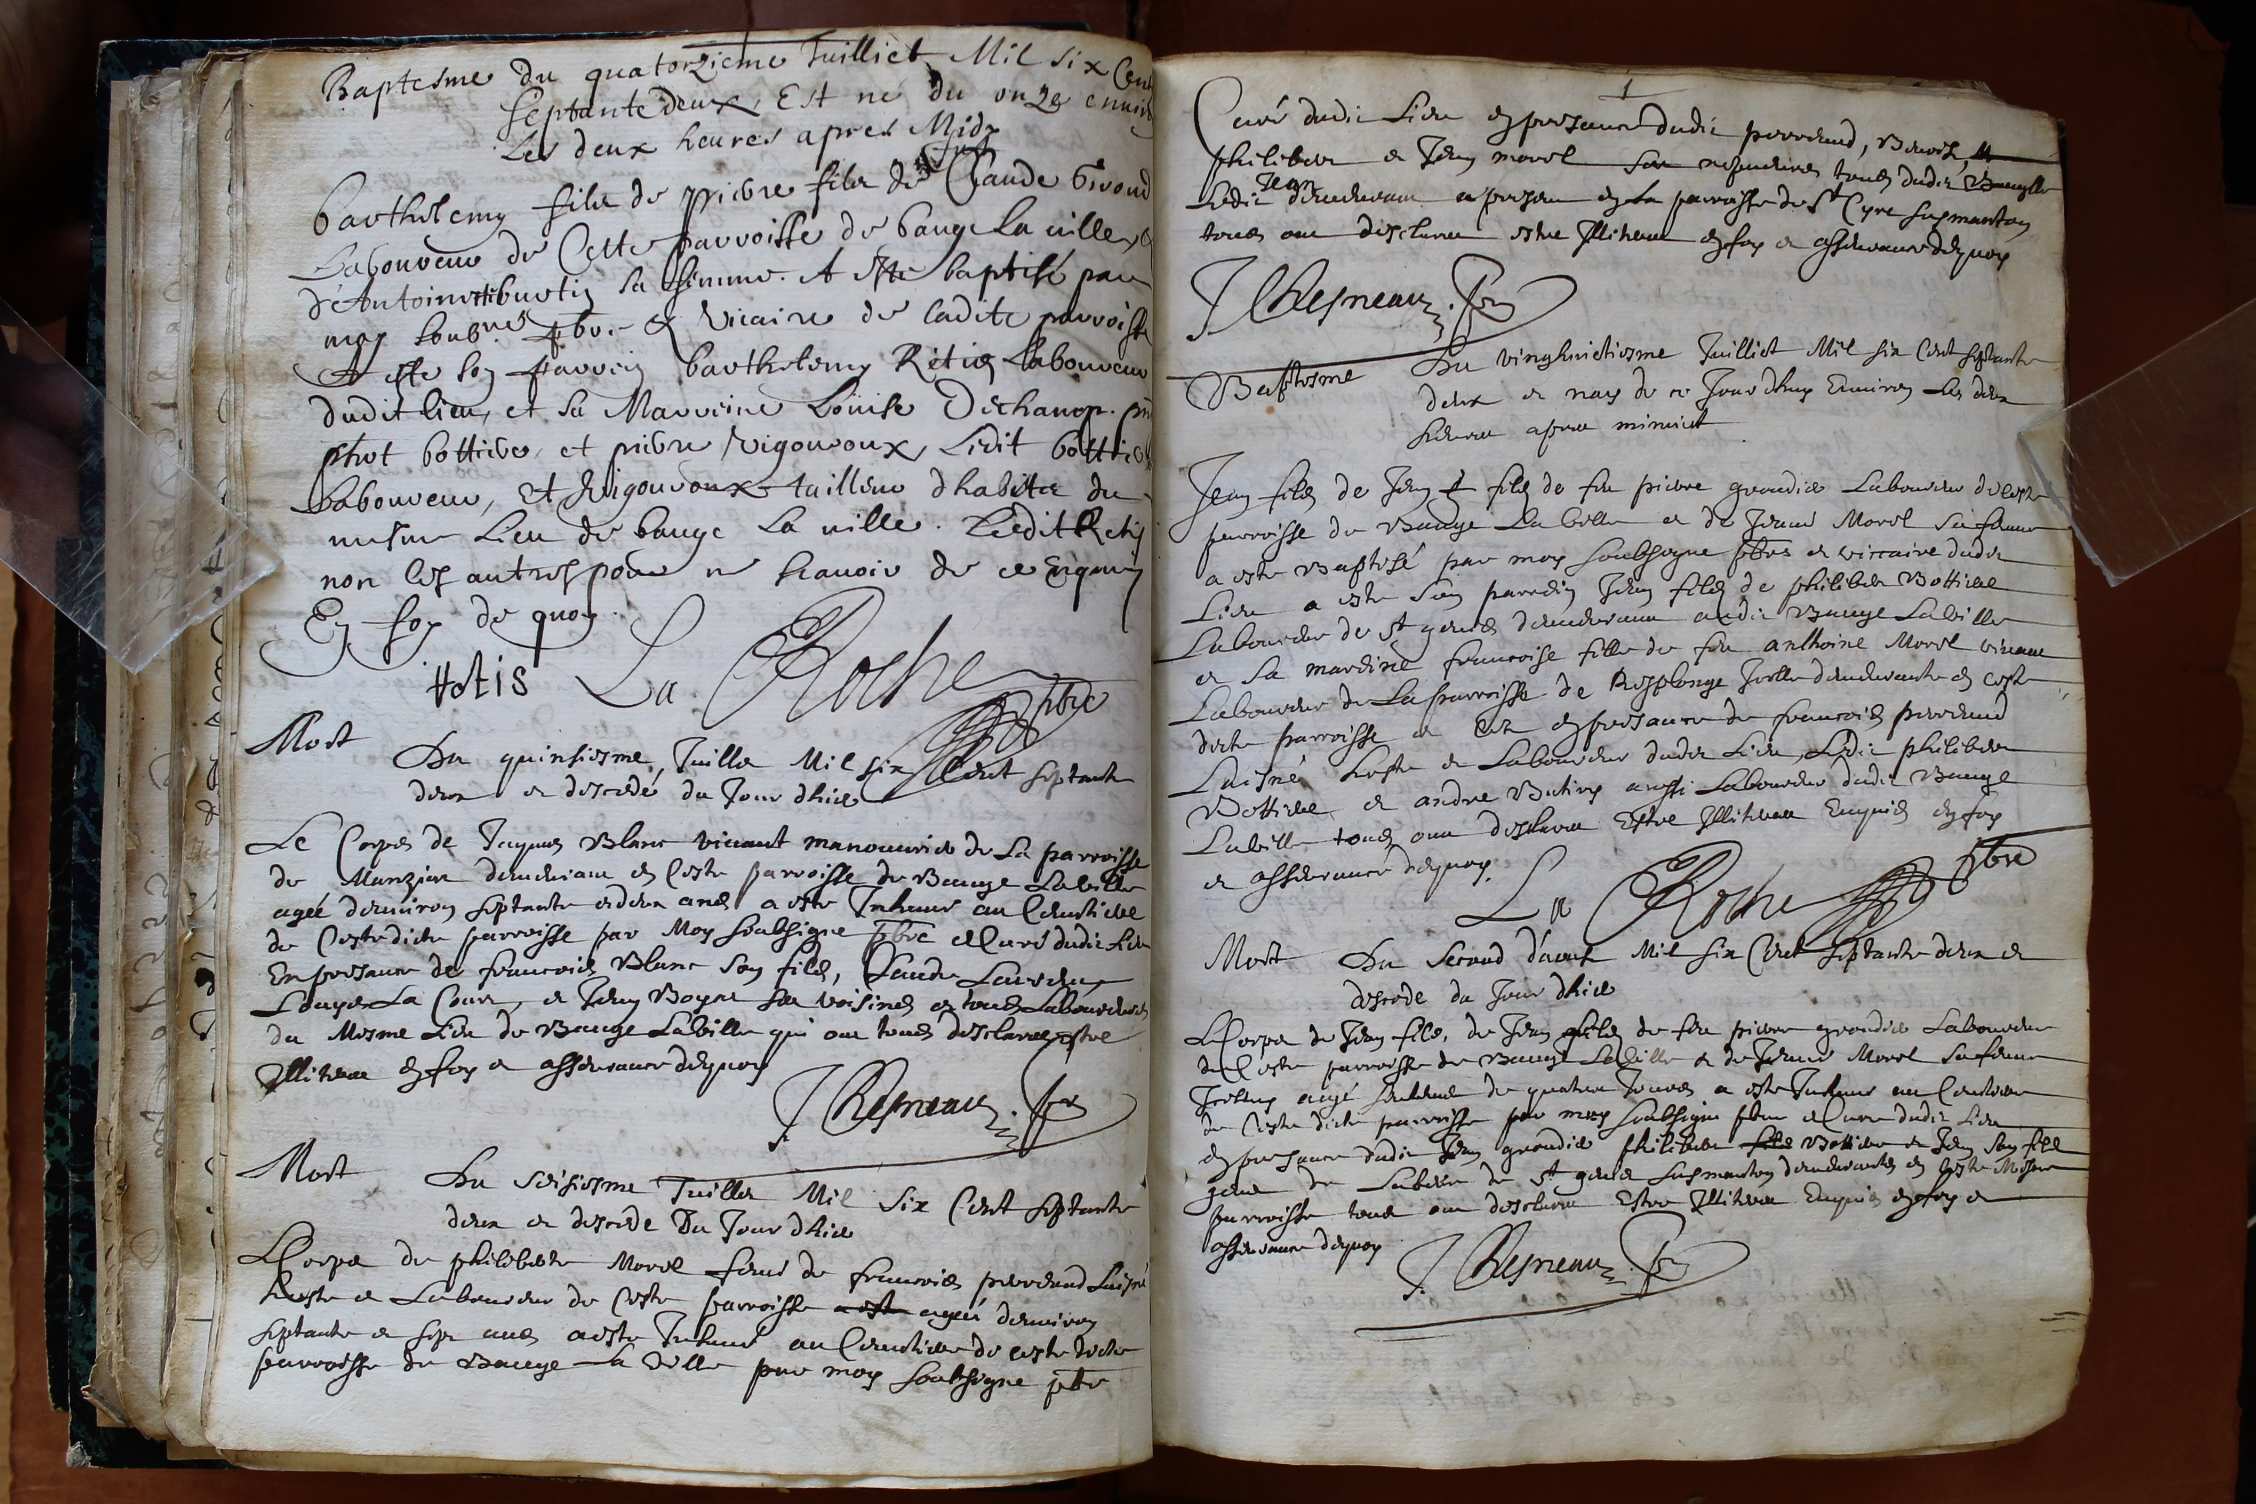 Baptesme du quatorzieme Juilliet Mil six Cent
septante deux, Est né du onze enuiron
Les deux heures apres Midy
Barthelemy fils de pierre fils de feu Claude Giroud
Laboureur de Cette parroisse de bauge la uille, et
d'Antoinette burtin sa femme. A esté baptisé par
moy soubné pbre & Vicaire de ladite parroisse
A esté son parrein barthelemy Rétis laboureur
dudit lieu, et sa Marreine Loüise Dechanop.
phot bottier, et pierre Vigouroux, Ledit bottier
laboureur, et Vigouroux tailleur dhabitz du
mesme Lieu de bauge la uille. Ledit Retis
non les autres pour ne scauoir de ce Enquis
En foy de quoy.
Retis La Roche pbre
Mort
Du quinsiesme Juillet Mil six Cent septante
deux et descedé du Jour dhier
Le Corps de Jaques Blanc viuant manouurier de La parroisse
de Manziat demeurant en Ceste parroisse de Bauge Laville
agée denuiron septante et deux ans a esté Inhumé au Cemetiere
de Ceste dicte parroisse par Moy soubsigne pbre et Curé dudit Lieu
En presance de francois Blanc son fils, Claude
La Cour, et Jean Boyat ses voisins et tous Laboureurs
du Mesme Lieu de Bauge Laville qui ont tous desclaré Estre
Illiteres en foy et assurance dequoy
J Chesneau. pbr
Mort
Du seisiesme Juillet Mil six Cent septante
deux et descede Du Jour dhier
Le Corps de philiberte Morel femme de francois perroud Laisné
hoste et Laboureur de Ceste parroisse a esté agée denuiron
septante et sept ans a esté Inhumé au Cemetiere de ceste dicte
parroisse de Bauge La Ville par moy soubsigne pbre
1
Curé dudit Lieu en presance dudit perroud, Benoist,
philibert et Jean morel ses tous dudit Baugelle
Ledit Jean demeurant a presant en La parroisse de St Cyre susmanton
tous ont desclaré estre Illiteres en foy et assurance dequoy
J Chesneau. pbr
Baptesme
Du vinghuictiesme Juilliet Mil six Cent septante
deux et nay de ce Jourdhuy Enuiron Les deux
heures apres minuict
Jean fils de Jean fils de feu pierre grandis Laboureur de ceste
parroisse de Bauge La Ville et de Jeane Morel sa femme
a esté Baptisé par moy soubsigne pbre et viccaire dudit
Lieu a esté son parrein Jean fils de philibert Bottier
Laboureur de St genis demeurant audit Bauge Laville
et sa mareine francoise fille de feu anthoine Morel viuant
Laboureur de La parroisse de Replonge Icelle demeurante en ceste
dicte parroisse et en presance de francois perroud
Laisné hoste et Laboureur dudit Lieu, Ledit philibert
Bottier et andre Butiry aussi Laboureur dudit Bauge
Laville tous ont desclaré Estre Illiteres Enquis en foy
et assurance dequoy.
La Roche pbre
Mort
Du second d'aoust Mil six Cent septante deux et
descede du Jour dhier
Le Corps de Jean fils, de Jean fils de feu pierre grandis Laboureur
de Ceste parroisse de Bauge Laville et de Jeane Morel sa femme
Iceluy agé seulement de quatre Jours a esté Inhumé au Cemetiere
de Ceste dicte parroisse par moy soubsigne pbre et Curé dudit Lieu
en presance dudit Jean grandis philibert fils Bottier et Jean son fils
gens de Labeur de St genis susmanton demeurants en ceste Mesme
parroisse tous ont desclaré Estre Illiteres Enquis en foy et
assurance dequoy
J. Chesneau. pbr